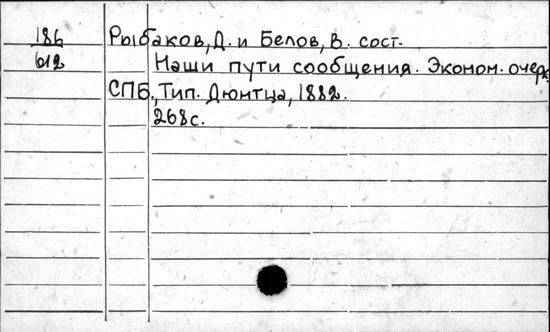 186
612
Рыбаков, Д. и Белов, В. сост.
Наши пути сообщения. Эконом. очерк.
СПБ., Тип. Дюнтца, 1882.
268 с.